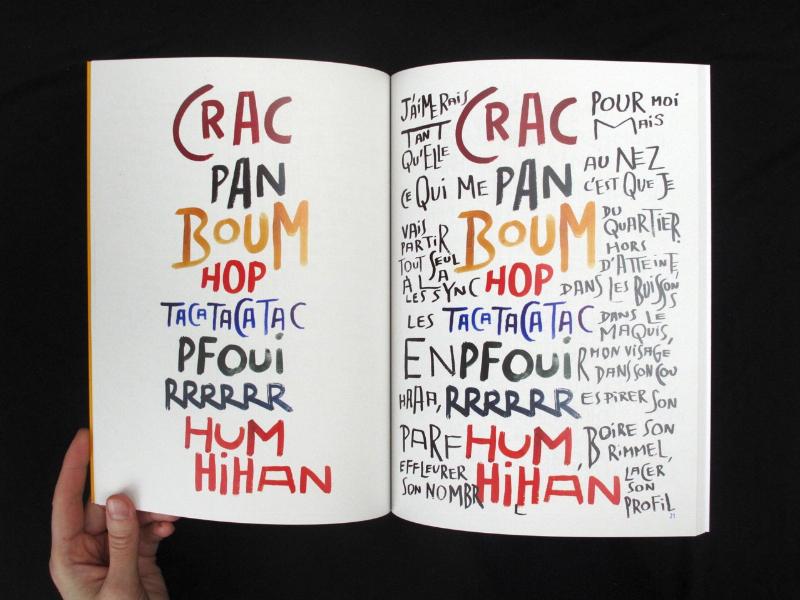 CRAC
PAN
BOUM
HOP
TACATACATAC
PFOUI
RRRRRR
HUM
HIHAN
J'AIMERAIS CRAC POUR MOI
TANT MAIS
QU'ELLE AU NEZ
CE QUI ME PAN C'EST QUE JE
VAIS BOUM DU
PARTIR QUARTIER,
TOUT SEUL HORS
À LA HOP D'ATTEINTE,
LES SYNC DANS LES BUISSONS
LES TACATACATAC DANS LE
MAQUIS,
ENPFOUIR MON VISAGE
DANS SON COU
HAAA, RRRRRR ESPIRER SON
PARFHUM, BOIRE SON
EFFLEURER RIMMEL,
SON NOMBRHIHAN LACER
SON
PROFIL
21